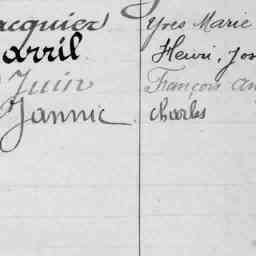 acquier Yves Marie
arril Henri, Jos
Juin François An
Jannic Charles